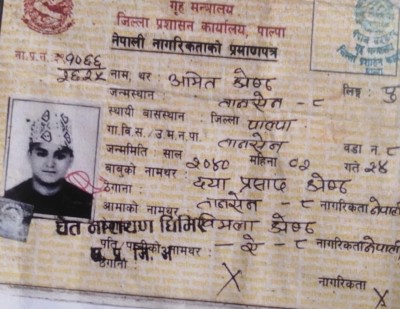 गृह मन्त्रालय
जिल्ला प्रशासन कार्यालय, पाल्पा
नेपाली नागरिकताको प्रमाणपत्र
ना.प्र.नं.
नाम, थर: अमित श्रेष्ठ लिङ्ग: पु
जन्मस्थान तानसेन - ८
स्थायी वासस्थान: जिल्ला पाल्पा
गा.बि.स./उ.म.न.पा. तानसेन वडा नं. ८
जन्ममिति साल २०४० महिना ०२ गते २४
बाबुको नामथर: दया प्रसाद श्रेष्ठ
ठेगाना: तानसेन - ८ नागरिकता नेपाली
आमाको नामथर श्रेष्ठ
नारायण घिमिरे
- ऐ - ८ नागरिकता नेपाली
प्र. जि. अ
ठेगाना: X नागरिकता X